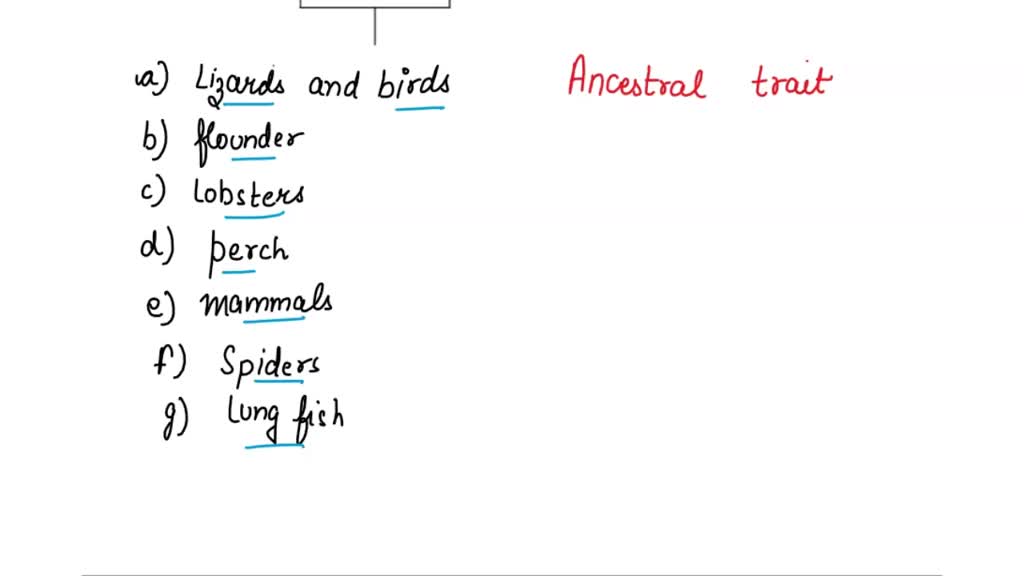 a) Lizards and birds
Ancestral trait
b) flounder
c) Lobsters
d) perch
e) mammals
f) Spiders
g) Lung fish